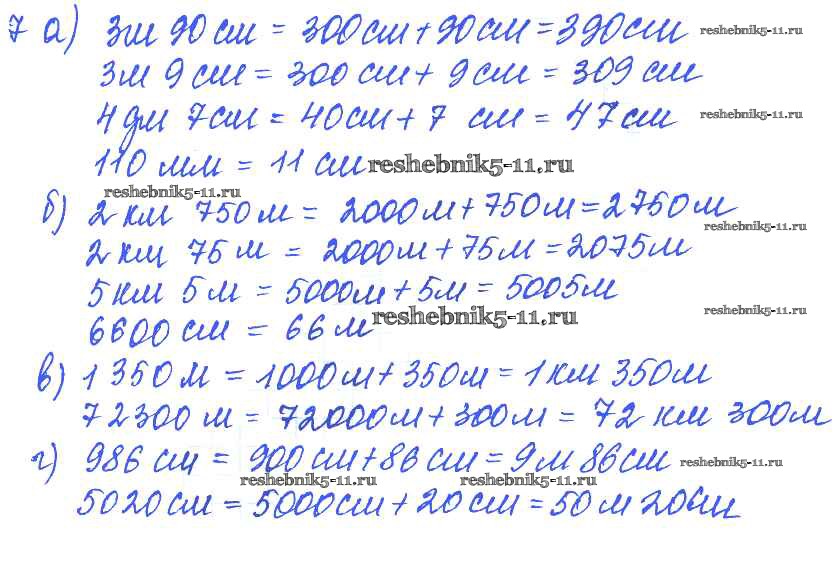 7 а) 3м 90 см = 300 см + 90 см = 390 см reshebnik5-11.ru
3м 9 см = 300 см + 9 см = 309 см
4 дм 7см = 40см + 7 см = 47 см reshebnik5-11.ru
110 мм = 11 см reshebnik5-11.ru
reshebnik5-11.ru
б) 2 км 750 м = 2000 м + 750 м = 2750 м
reshebnik5-11.ru
2 км 75 м = 2000 м + 75 м = 2075 м
5 км 5 м = 5000м + 5м = 5005 м
6600 см = 66 м reshebnik5-11.ru reshebnik5-11.ru
в) 1 350 м = 1000 м + 350 м = 1 км 350м
72300 м = 72000м + 300м = 72 км 300м
г) 986 см = 900 см + 86 см = 9 м 86 см reshebnik5-11.ru
reshebnik5-11.ru reshebnik5-11.ru
5020 см = 5000см + 20 см = 50 м 20см